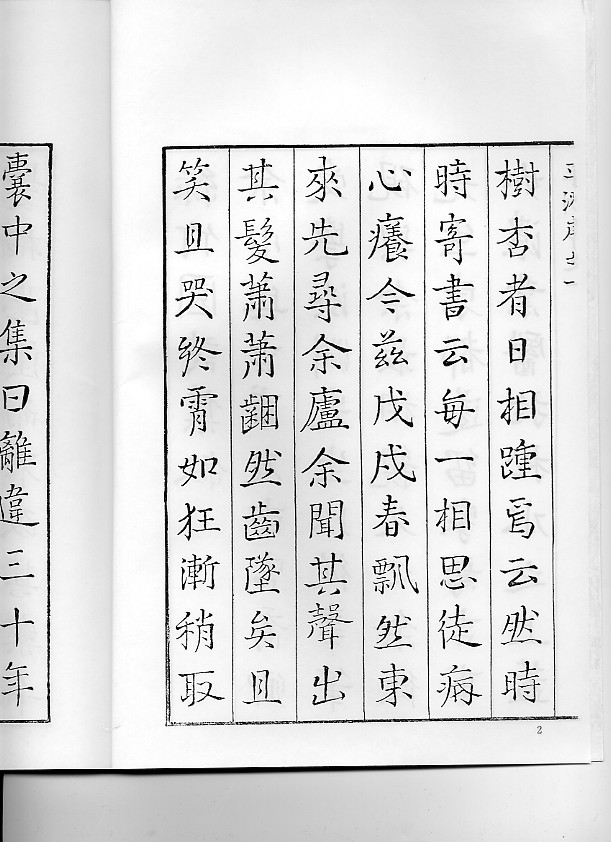 樹杏者日相踵焉云然時
時寄書云每一相思徒病
心癢今茲戊戌春飄然東
來先尋余廬余聞其聲出
其髮蕭蕭齫然齒墜矣且
笑且哭終宵如狂漸稍取
囊中之集曰離違三十年
2